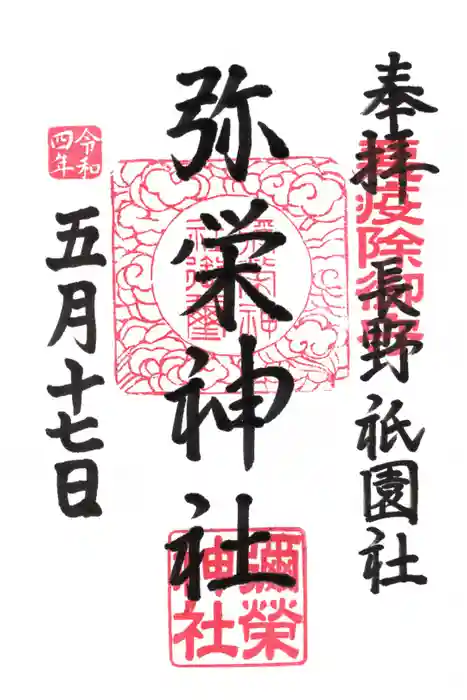 奉拝
疫除御
長野祇園社
弥栄神社
神社
彌榮
令和
四年
五月十七日